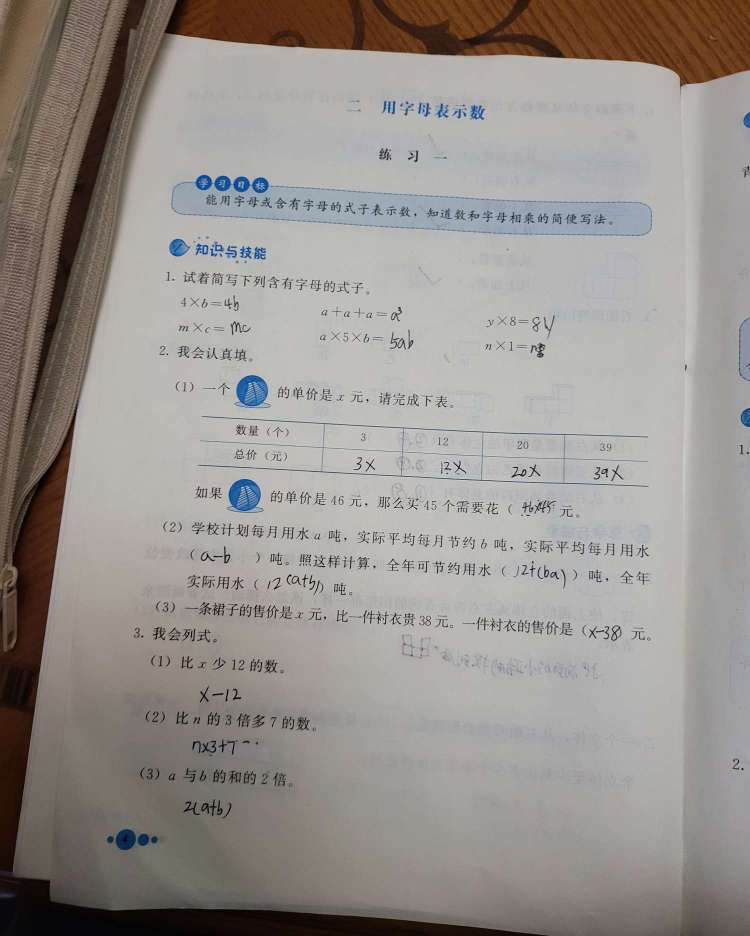 二 用字母表示数
练 习 一
学习目标
能用字母或含有字母的式子表示数，知道数和字母相乘的简便写法。
知识与技能
1. 试着简写下列含有字母的式子。
4×b=4b a+a+a=a³ y×8=8y
m×c=mc a×5×b=5ab n×1=
2. 我会认真填。
（1）一个 的单价是 x 元，请完成下表。
数量（个） 3 12 20 39
总价（元） 3x 12x 20x 39x
如果 的单价是 46 元，那么买 45 个需要花（ 46×45 元。
（2）学校计划每月用水 a 吨，实际平均每月节约 b 吨，实际平均每月用水
（ a-b ）吨。照这样计算，全年可节约用水（ 12+(ba) ）吨，全年
实际用水（ 12(a+b) ）吨。
（3）一条裙子的售价是 x 元，比一件衬衣贵 38 元。一件衬衣的售价是（x-38）元。
3. 我会列式。
（1）比 x 少 12 的数。
x-12
（2）比 n 的 3 倍多 7 的数。
n×3+7
（3）a 与 b 的和的 2 倍。
2(a+b)
4
1.
2.